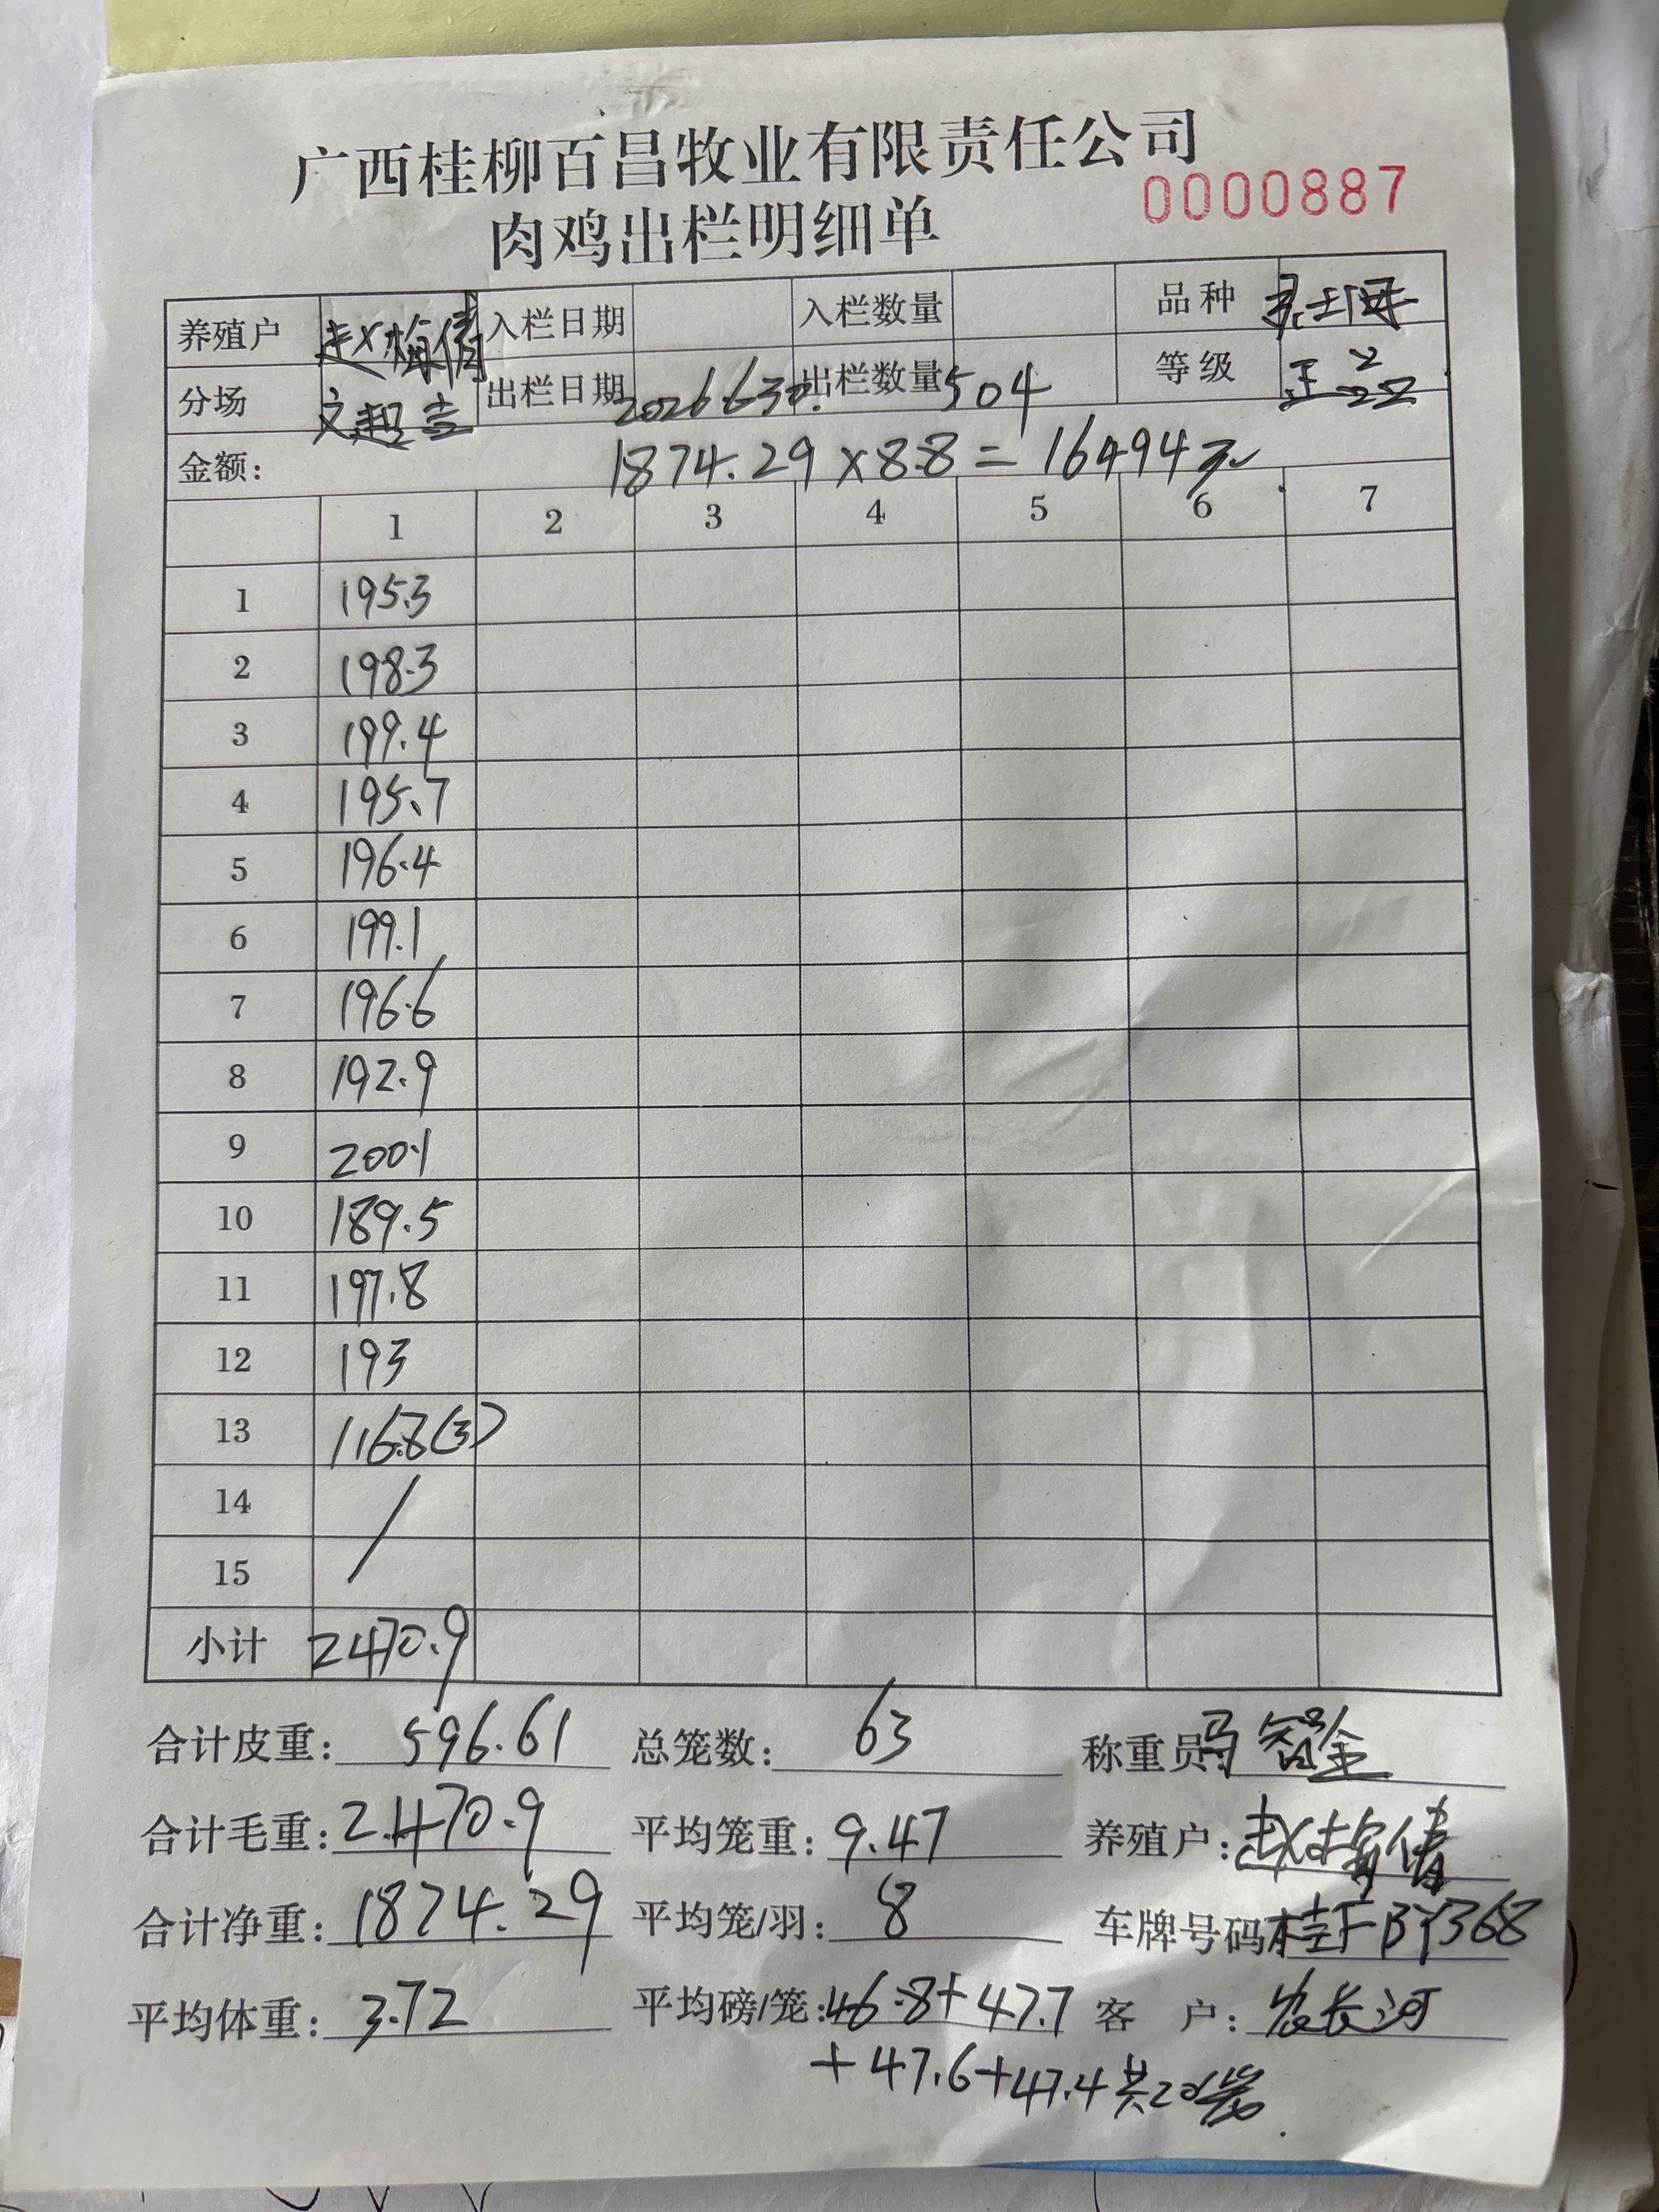 广西桂柳百昌牧业有限责任公司
0000887
肉鸡出栏明细单
养殖户 赵梅倩 入栏日期 入栏数量 品种
分场 文超吉 出栏日期 2026630. 出栏数量 504 等级
金额: 1874.29×8.8=16494元
1 2 3 4 5 6 7
1 195.3
2 198.3
3 199.4
4 195.7
5 196.4
6 199.1
7 196.6
8 192.9
9 200.1
10 189.5
11 197.8
12 193
13 116.8(3)
14 /
15
小计 2470.9
合计皮重: 596.61 总笼数: 63 称重员: 马智金
合计毛重: 2470.9 平均笼重: 9.47 养殖户: 赵梅倩
合计净重: 1874.29 平均笼/羽: 8 车牌号码 桂F BY368
平均体重: 3.72 平均磅/笼: 46.8+47.7 客 户: 农长河
+47.6+47.4共20笼.